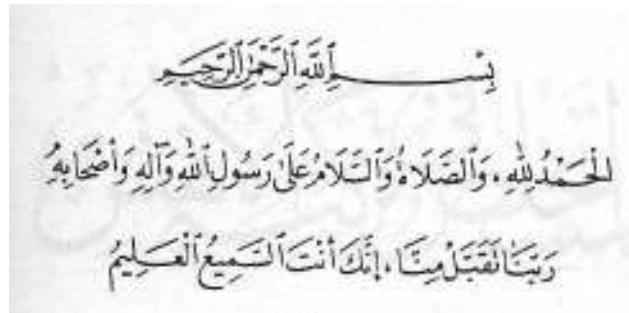 بِسْمِ ٱللَّهِ ٱلرَّحْمَٰنِ ٱلرَّحِيمِ
الْحَمْدُ لِلَّهِ، وَٱلصَّلَاةُ وَٱلسَّلَامُ عَلَىٰ رَسُولِ ٱللَّهِ وَآلِهِ وَأَصْحَابِهِ
رَبَّنَا تَقَبَّلْ مِنَّا، إِنَّكَ أَنْتَ ٱلسَّمِيعُ ٱلْعَلِيمُ